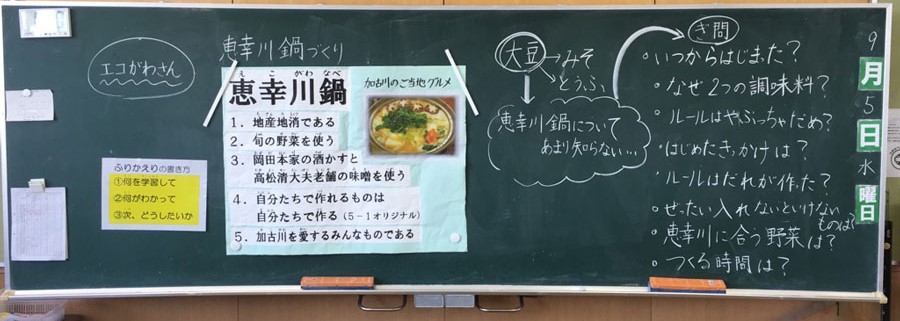 エコがわさん
恵幸川鍋づくり
えこがわなべ
恵幸川鍋
加古川のご当地グルメ
1．地産地消である
2．旬の野菜を使う
3．岡田本家の酒かすと
高松清大夫老舗の味噌を使う
4．自分たちで作れるものは
自分たちで作る（5－1オリジナル）
5．加古川を愛するみんなものである
ふりかえりの書き方
①何を学習して
②何がわかって
③次、どうしたいか
大豆→みそ
とうふ
恵幸川鍋について
あまり知らない…
ぎ問
・いつからはじまった？
・なぜ2つの調味料？
・ルールはやぶっちゃだめ？
・はじめたきっかけは？
・ルールはだれが作った？
・ぜったい入れないといけない
ものは？
・恵幸川に合う野菜は？
・つくる時間は？
9
月
5
日
水
曜
日